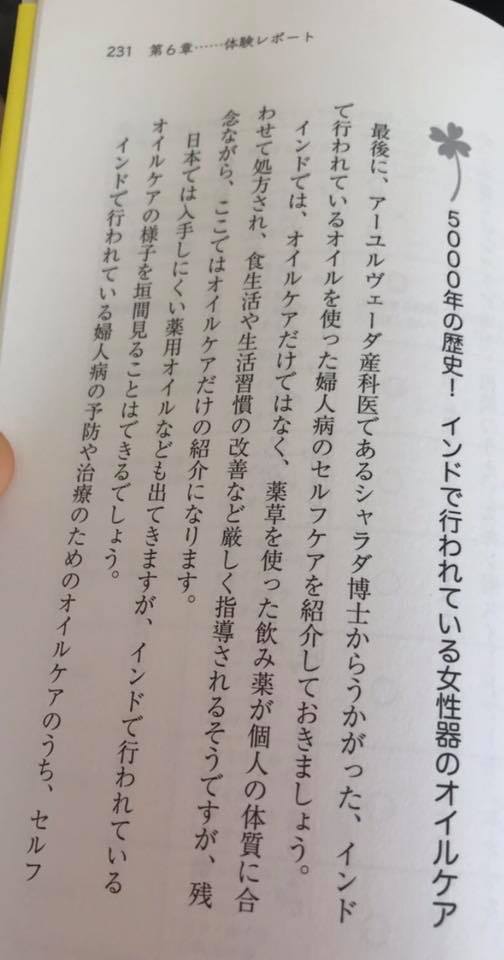 231 第6章……体験レポート
5000年の歴史! インドで行われている女性器のオイルケア
最後に、アーユルヴェーダ産科医であるシャラダ博士からうかがった、インド
で行われているオイルを使った婦人病のセルフケアを紹介しておきましょう。
インドでは、オイルケアだけではなく、薬草を使った飲み薬が個人の体質に合
わせて処方され、食生活や生活習慣の改善など厳しく指導されるそうですが、残
念ながら、ここではオイルケアだけの紹介になります。
日本では入手しにくい薬用オイルなども出てきますが、インドで行われている
オイルケアの様子を垣間見ることはできるでしょう。
インドで行われている婦人病の予防や治療のためのオイルケアのうち、セルフ